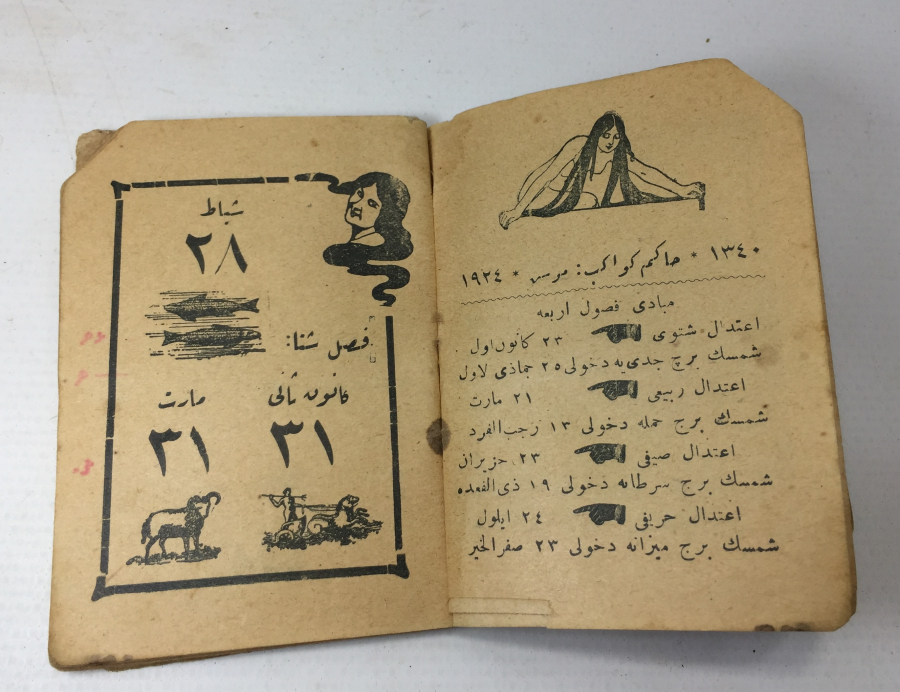 ١٣٤٠ * حاكم كواكب: مريس * ١٩٢٤
مبادئ فصول اربعه
اعتدال شتوى ٢٣ كانون اول
شمسك برج جدى‌يه دخولى ٢٥ جماذى لاول
اعتدال ربيعى ٢١ مارت
شمسك برج حمله دخولى ١٣ رجب الفرد
اعتدال صيفى ٢٣ حزيران
شمسك برج سرطانه دخولى ١٩ ذى القعده
اعتدال حريفى ٢٤ ايلول
شمسك برج ميزانه دخولى ٢٣ صفر الخير
شباط
٢٨
فصل شتا:
كانون ثانى
٣١
مارت
٣١